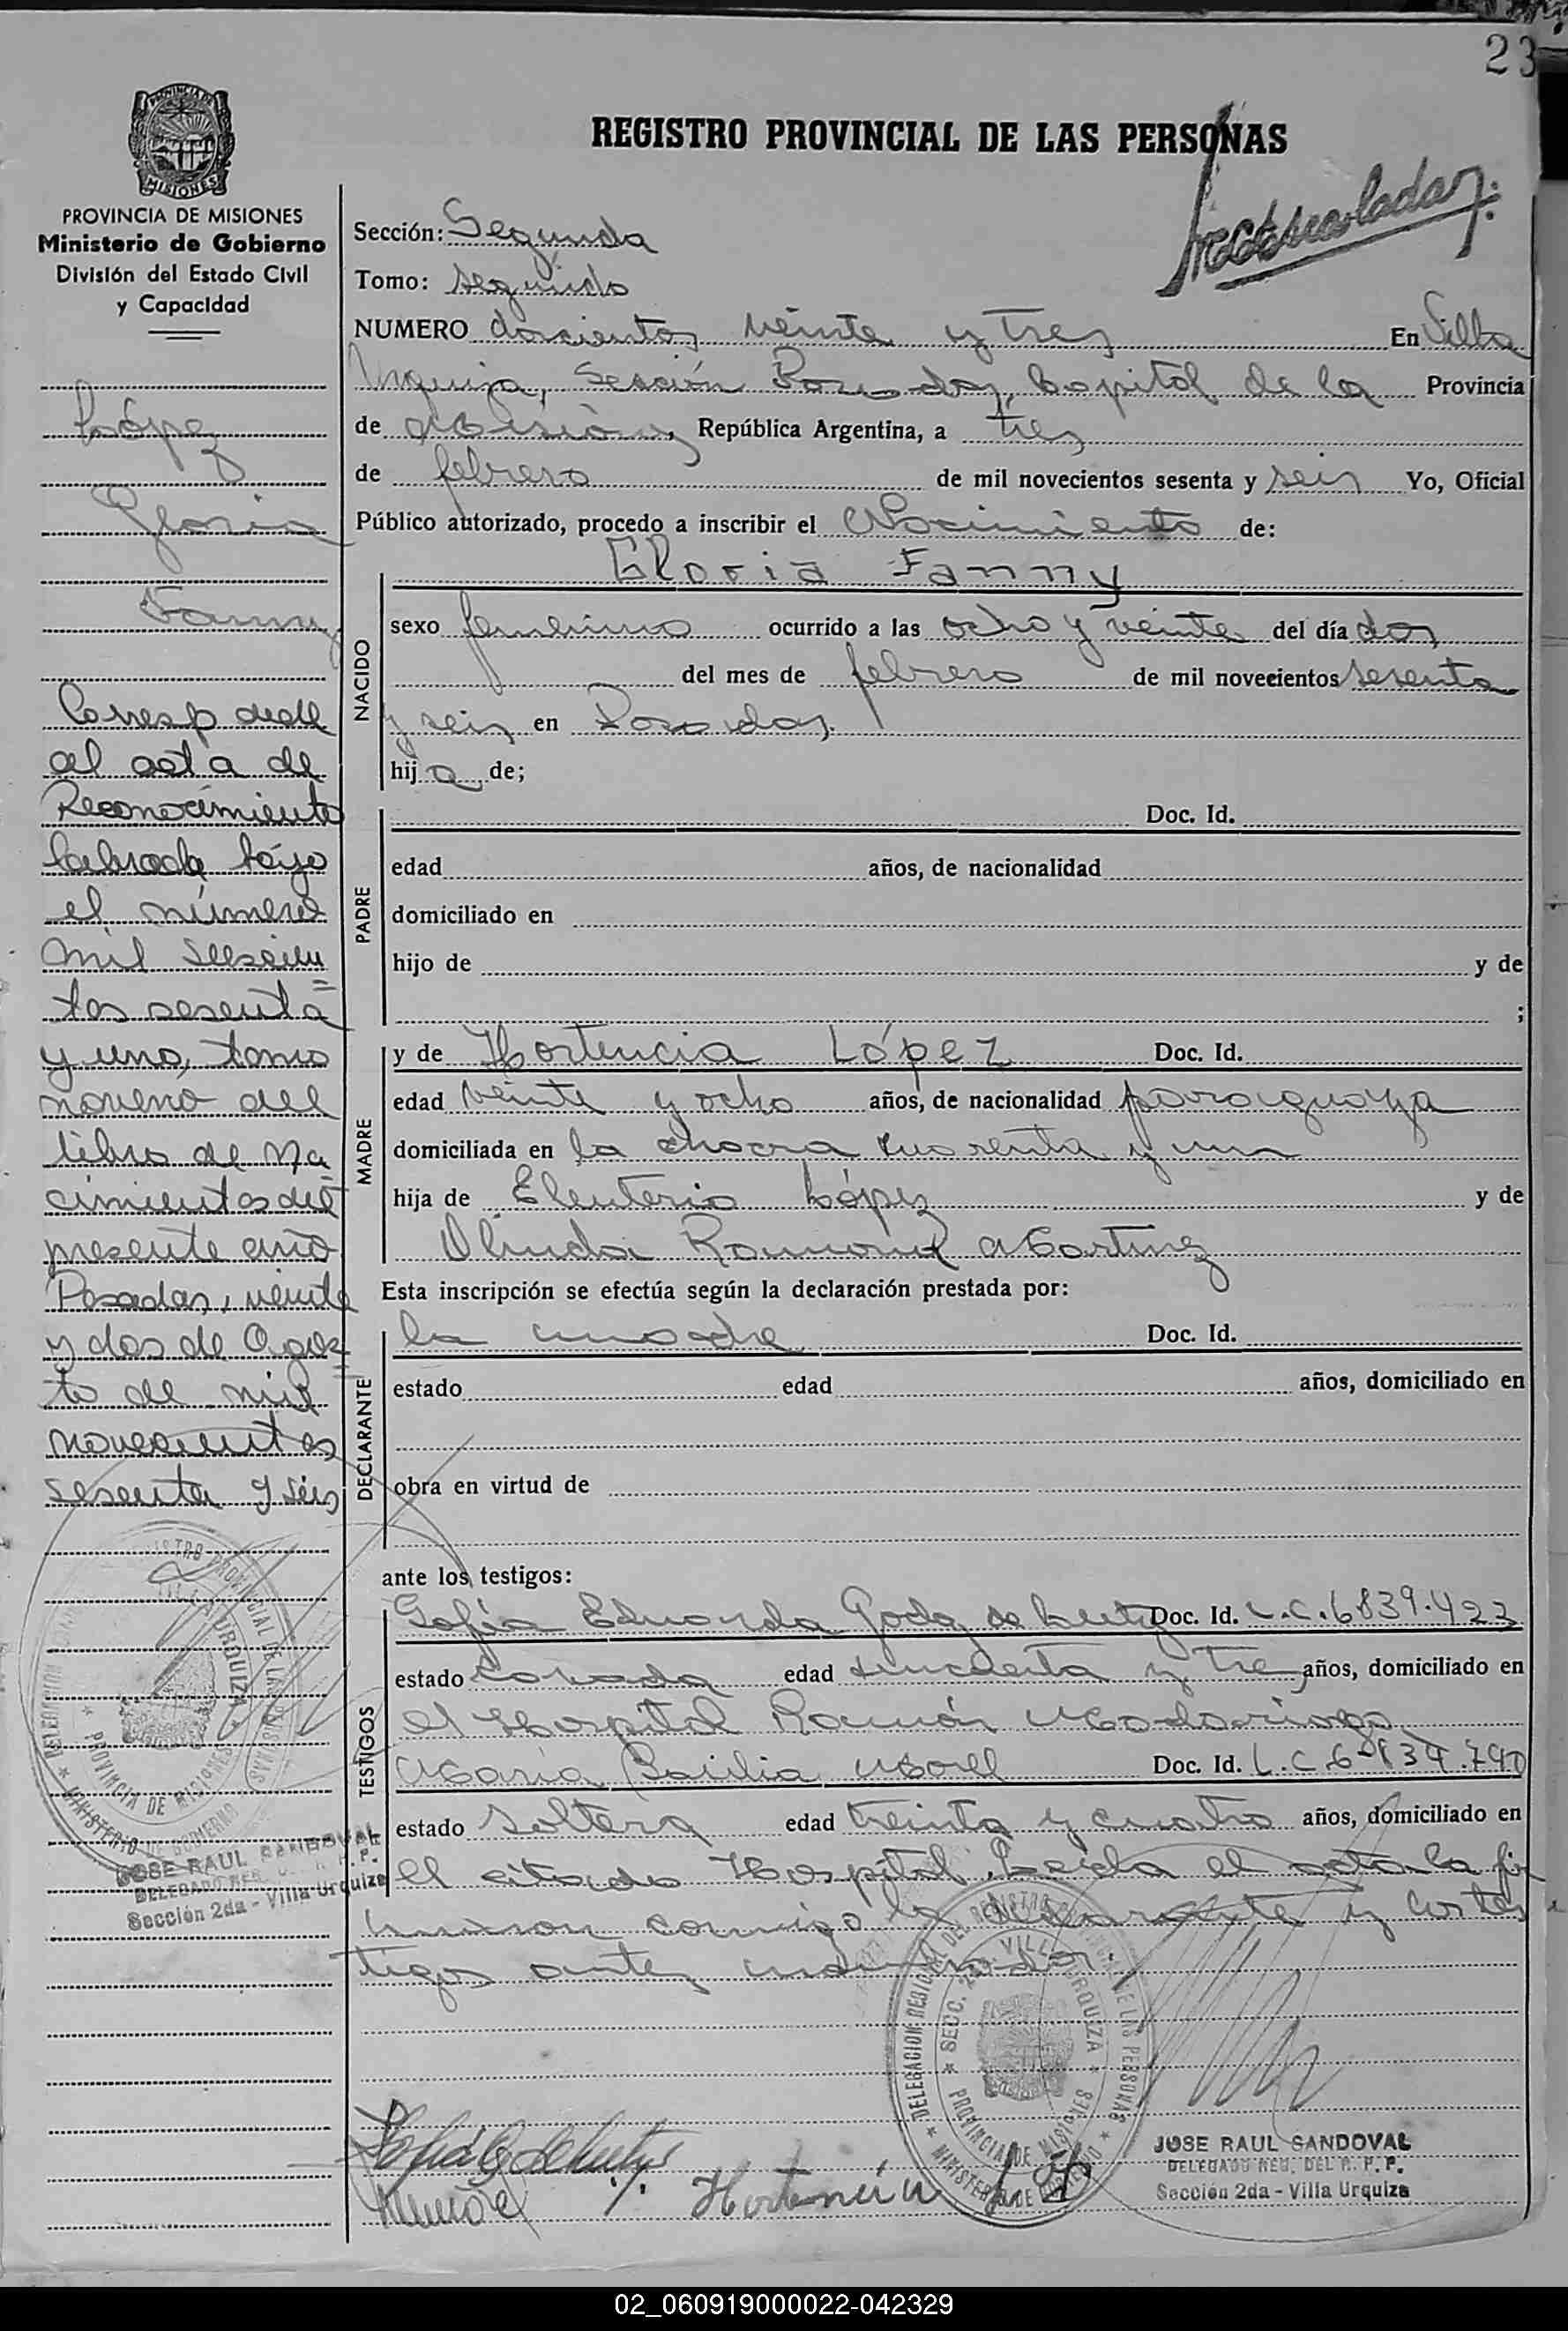 23
REGISTRO PROVINCIAL DE LAS PERSONAS
PROVINCIA DE MISIONES
PROVINCIA DE MISIONES
Ministerio de Gobierno
División del Estado Civil
y Capacidad
López
Gloria
Fanny
Corresponde
al acta de
Reconocimiento
labrada bajo
el número
mil seiscien=
tos sesenta
y uno, tomo
noveno del
libro de Na
cimientos del
presente año
Posadas, veinte
y dos de Agos=
to de mil
novecientos
sesenta y seis
JOSE RAUL SANDOVAL
DELEGADO REG. DEL R. P. P.
Sección 2da - Villa Urquiza
Sección: Segunda
Tomo: segundo
NUMERO doscientos veinte y tres En Villa
Urquiza, Sección Posadas, Capital de la Provincia
de Misiones República Argentina, a tres
de febrero de mil novecientos sesenta y seis Yo, Oficial
Público autorizado, procedo a inscribir el Nacimiento de:
Gloria Fanny
NACIDO
sexo femenino ocurrido a las ocho y veinte del día dos
del mes de febrero de mil novecientos sesenta
y seis en Posadas.
hija de;
PADRE
Doc. Id.
edad años, de nacionalidad
domiciliado en
hijo de y de
;
MADRE
y de Hortencia López Doc. Id.
edad veinte y ocho años, de nacionalidad paraguaya
domiciliada en la chacra cuarenta y un
hija de Eleuterio López y de
Olinda Ramona Martinez
Esta inscripción se efectúa según la declaración prestada por:
DECLARANTE
la madre Doc. Id.
estado edad años, domiciliado en
obra en virtud de
ante los testigos:
TESTIGOS
Sofía Eduarda Godoy de Doc. Id. L.C.6839.423
estado casada edad cincuenta y tres años, domiciliado en
el Hospital Ramón Madariaga
María Basilia Morel Doc. Id. L.C.6-839.790
estado soltera edad treinta y cuatro años, domiciliado en
el citado Hospital. Leída el acta la fir
maron conmigo la declarante y los tes
tigos antes
DELEGACION REGIONAL DEL REGISTRO PROVINCIAL DE LAS PERSONAS
SECC. 2da VILLA URQUIZA
PROVINCIA DE MISIONES
MINISTERIO DE GOBIERNO
Hortencia
JOSE RAUL SANDOVAL
DELEGADO REG. DEL R. P. P.
Sección 2da - Villa Urquiza
02_060919000022-042329